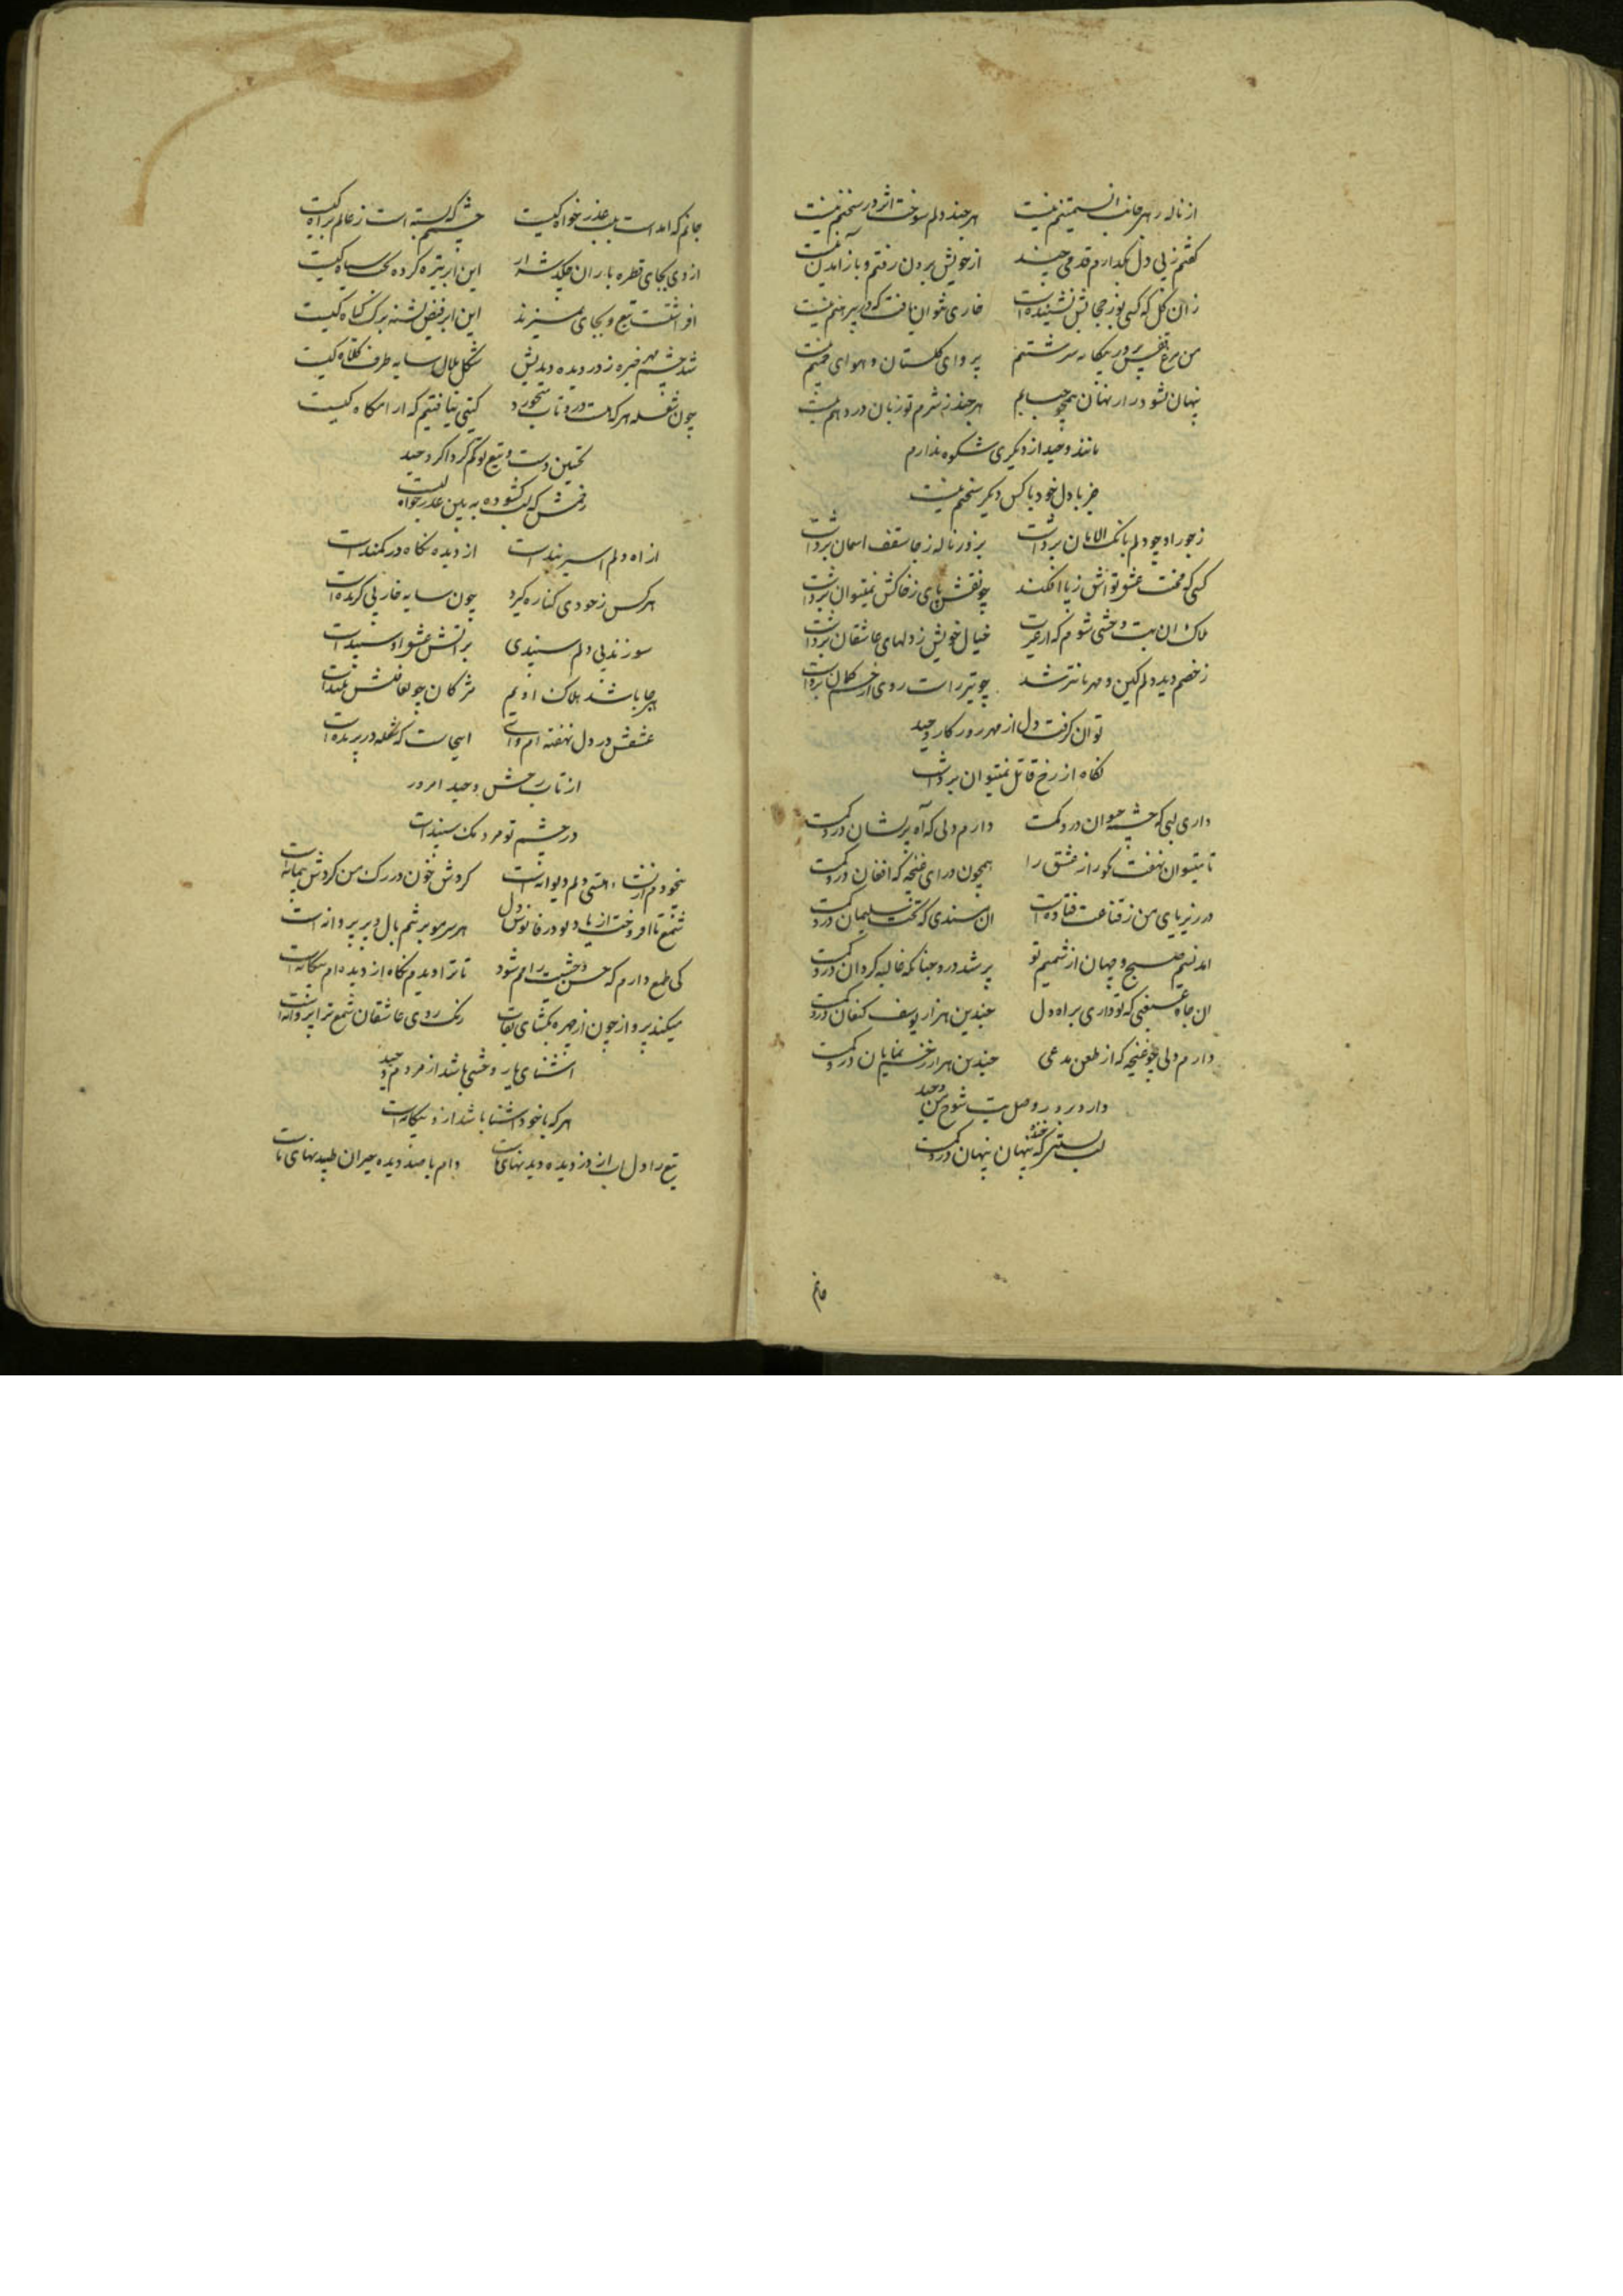 از ناله بهر جانب انسیتنم نیست هرچند دلم سوخت اثر در سخنم نیست
گفتم ز پی دل بگذارم قدمی چند از خویش برون رفتم و باز آمدنم نیست
زان گل که کسی بوز حجابش نشنیده است خاری نتوان یافت که در پیرهنم نیست
من مرغ قفس پرور بیگانه سرشتم پروای گلستان و هوای چمنم نیست
پنهان نشود راز نهان همچو حبابم هرچند ز شرم تو زبان در دهنم نیست
مانند وحید از دیگری شکوه ندارم
جز با دل خود با کس دیگر سخنم نیست
ز جور او چو دلم بانک الامان برداشت بزور ناله ز جا سقف اسمان برداشت
کسی که محنت عشق تواش ز پا افکند چو نقش پای ز خاکش نمیتوان برداشت
هلاک ان بت وحشی شوم که از غیرت خیال خویش ز دلهای عاشقان برداشت
ز خصم دید دلم کین و مهربانتر شد چو تیر راست روی از خم کمان برداشت
توان گرفت دل از مهر روزکار وحید
نگاه از رخ قاتل نمیتوان برداشت
داری لبی که چشمه حیوان درو گمست دارم دلی که آه پریشان درو گمست
تا میتوان نهفت نکو راز عشق را همچون درای غنچه که افغان درو گمست
در زیر پای من ز قناعت فتاده است ان مسندی که تخت سلیمان درو گمست
امد نسیم صبح و جهان از شمیم تو پر شد درو چنانکه غالیه گردان درو گمست
ان چاه غبغبی که تو داری براه دل چندین هزار یوسف کنعان درو گمست
دارم دلی چو غنچه که از طعن مدعی چندین هزار زخم نمایان درو گمست
دارد بروز وصل بت شوخ من وحید
لب بستنی که خنده پنهان درو گمست
جانم
جانم که امد است بلب عذرخواه کیست چشمم که بسته است ز عالم براه کیست
از وی بجای قطره باران چکد شرار این ابر تیره کرده بخت سیاه کیست
افراشتست تیغ و بجای نمیزند این ابر فیض تشنه برک گیاه کیست
شد چشم مهر خیره ز دزدیده دیدنش شکل هلال سایه طرف کلاه کیست
چون شعله هر که هست درو تاب میخورد گیتی نیافتیم که ارامگاه کیست
تحسین دست و تیغ تو گم کرد اگر وحید
زخمش که لب گشوده به بین عذرخواه کیست
از اه دلم اسیر بندست از دیده نگاه در کمندست
هر کس ز خودی کناره گیرد چون سایه خار بی گزندست
سوزند پی دلم سپندی بر اتش عشق او سپندست
هرجا باشند هلاک اویم مژکان چو لوافکنش بلندست
عشقش در دل نهفته ام وای اینجاست که شعله در پرندست
از تاب رخش وحید امروز
در چشم تو مردمک سپندست
بیخودم از نشاء هستی و لم دیوانه است گردش خون در رک من گردش پیمانه است
شمع تا افروخت از یاد تو در فانوس دل هر سر مو بر تنم بال و پر پروانه است
کی طمع دارم که حسن وحشیت رامم شود تا ترا دیدم نگاه از دیده ام بیگانه است
میکند پرواز چون از چهره بگشای نقاب رنک روی عاشقان شمع ترا پروانه است
اشنای یار وحشی باشد از مردم وحید
هر که با خود اشنا باشد ازو بیگانه است
تیغ را دل اب از دزدیده دیدنهای ماست دام با صد دیده حیران طپیدنهای ماست